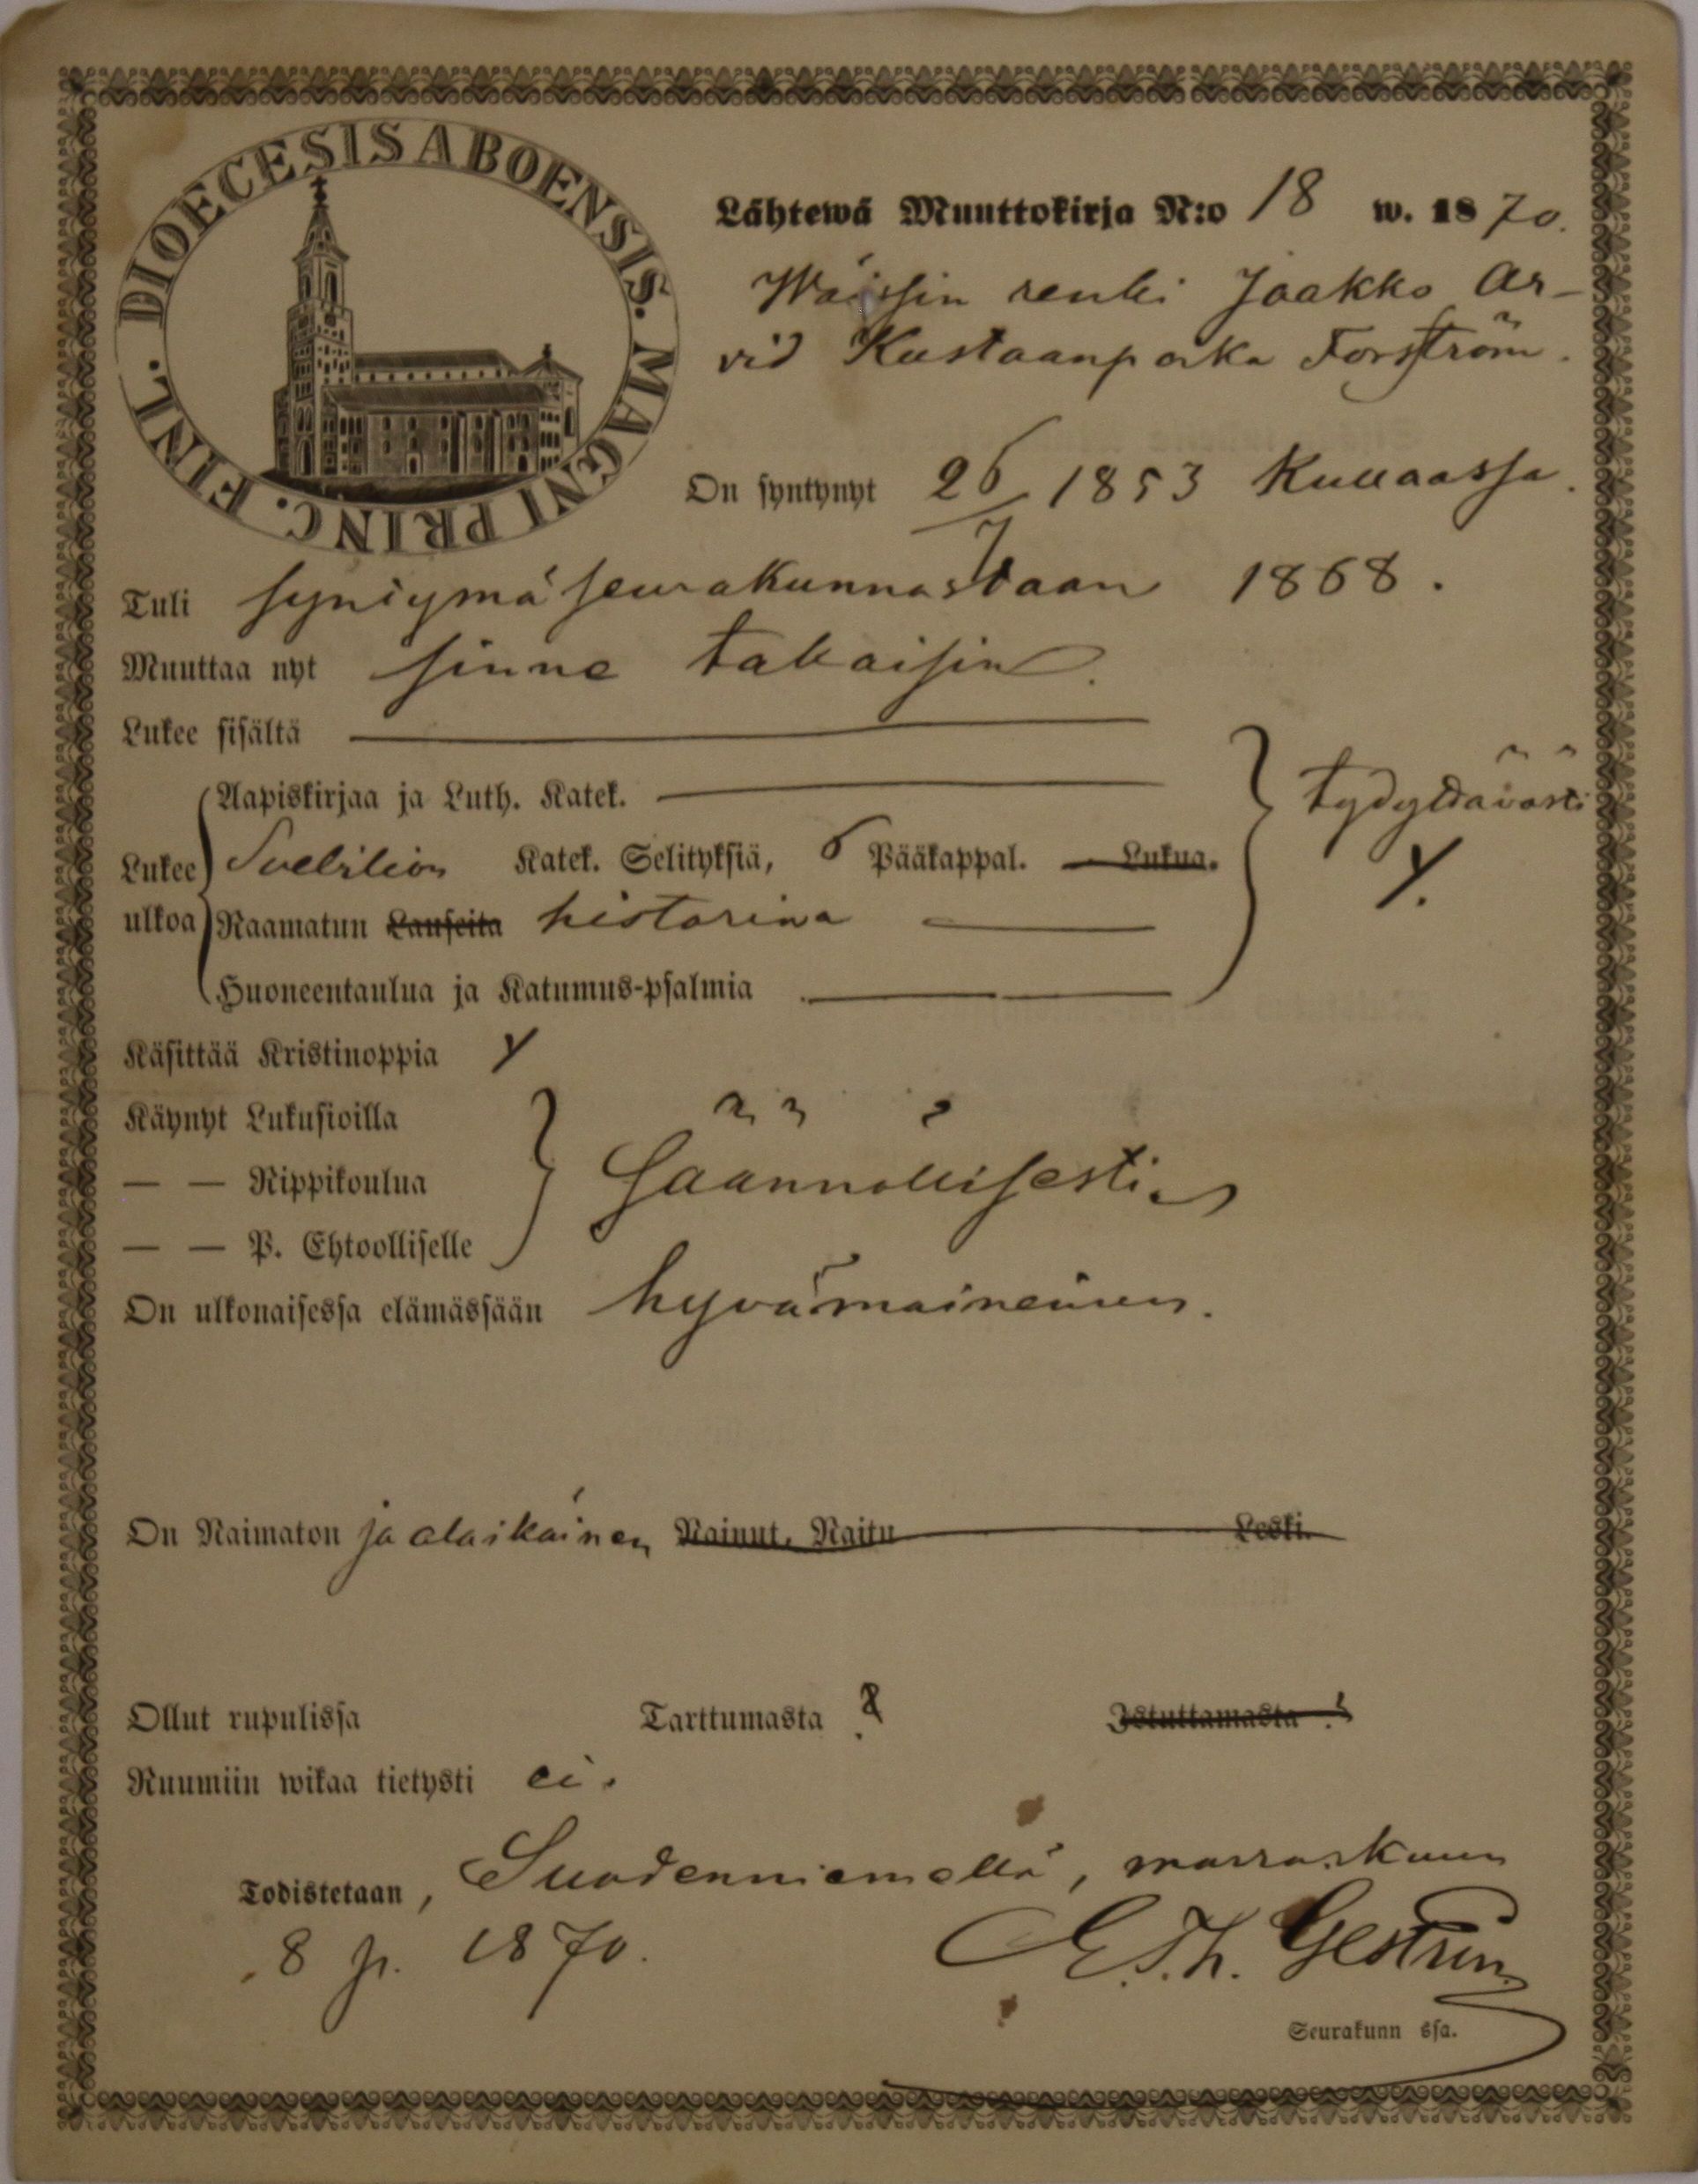 DIOECESIS ABOENSIS. MAGNI PRINC. FINL.
Lähtewä Muuttokirja N:o 18 w. 1870.
renki Jaakko Ar-
vid Kustaanpoika Forsström.
On syntynyt 26/7 1853 Kullaassa.
Tuli synlymäseurakunnastaan 1868.
Muuttaa nyt sinne takaisin.
Lukee sisältä
Aapiskirjaa ja Luth. Katek.
tydyttävästi
Lukee ulkoa
Svebilion Katek. Selityksiä, 6 Pääkappal. Lukua.
y.
Raamatun Lauseita historiaa
Huoneentaulua ja Katumus-psalmia
Käsittää Kristinoppia y
Käynyt Lukusioilla
— — Rippikoulua
Säännöllisesti
— — P. Ehtoolliselle
On ulkonaisessa elämässään hyvämaineinen.
On Naimaton ja alaikäinen Nainut, Naitu Leski.
Ollut rupulissa Tarttumasta ? Istuttamasta ?
Ruumiin wikaa tietysti ei.
Todistetaan, Suodenniemellä, marraskuun
8 p. 1870.
E. Th. Gestrin
Seurakunn ssa.